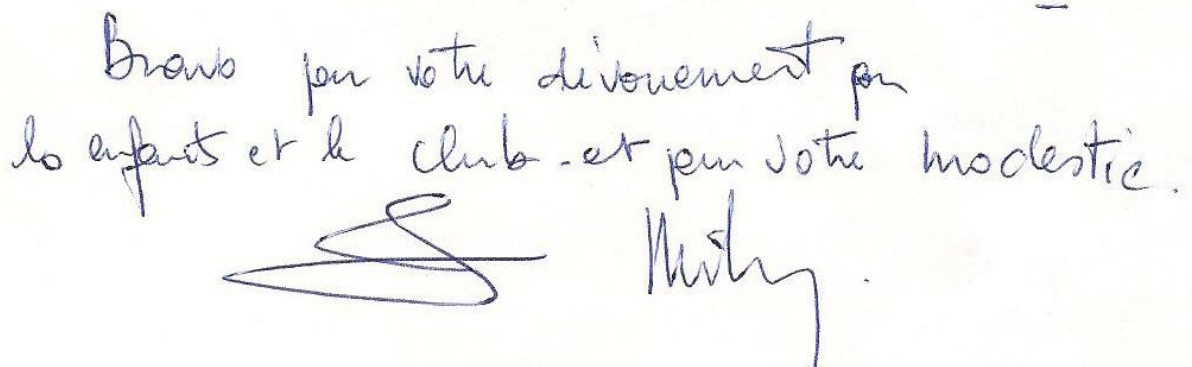 Bravo pour votre dévouement pour
les enfants et le club - et pour votre modestie.